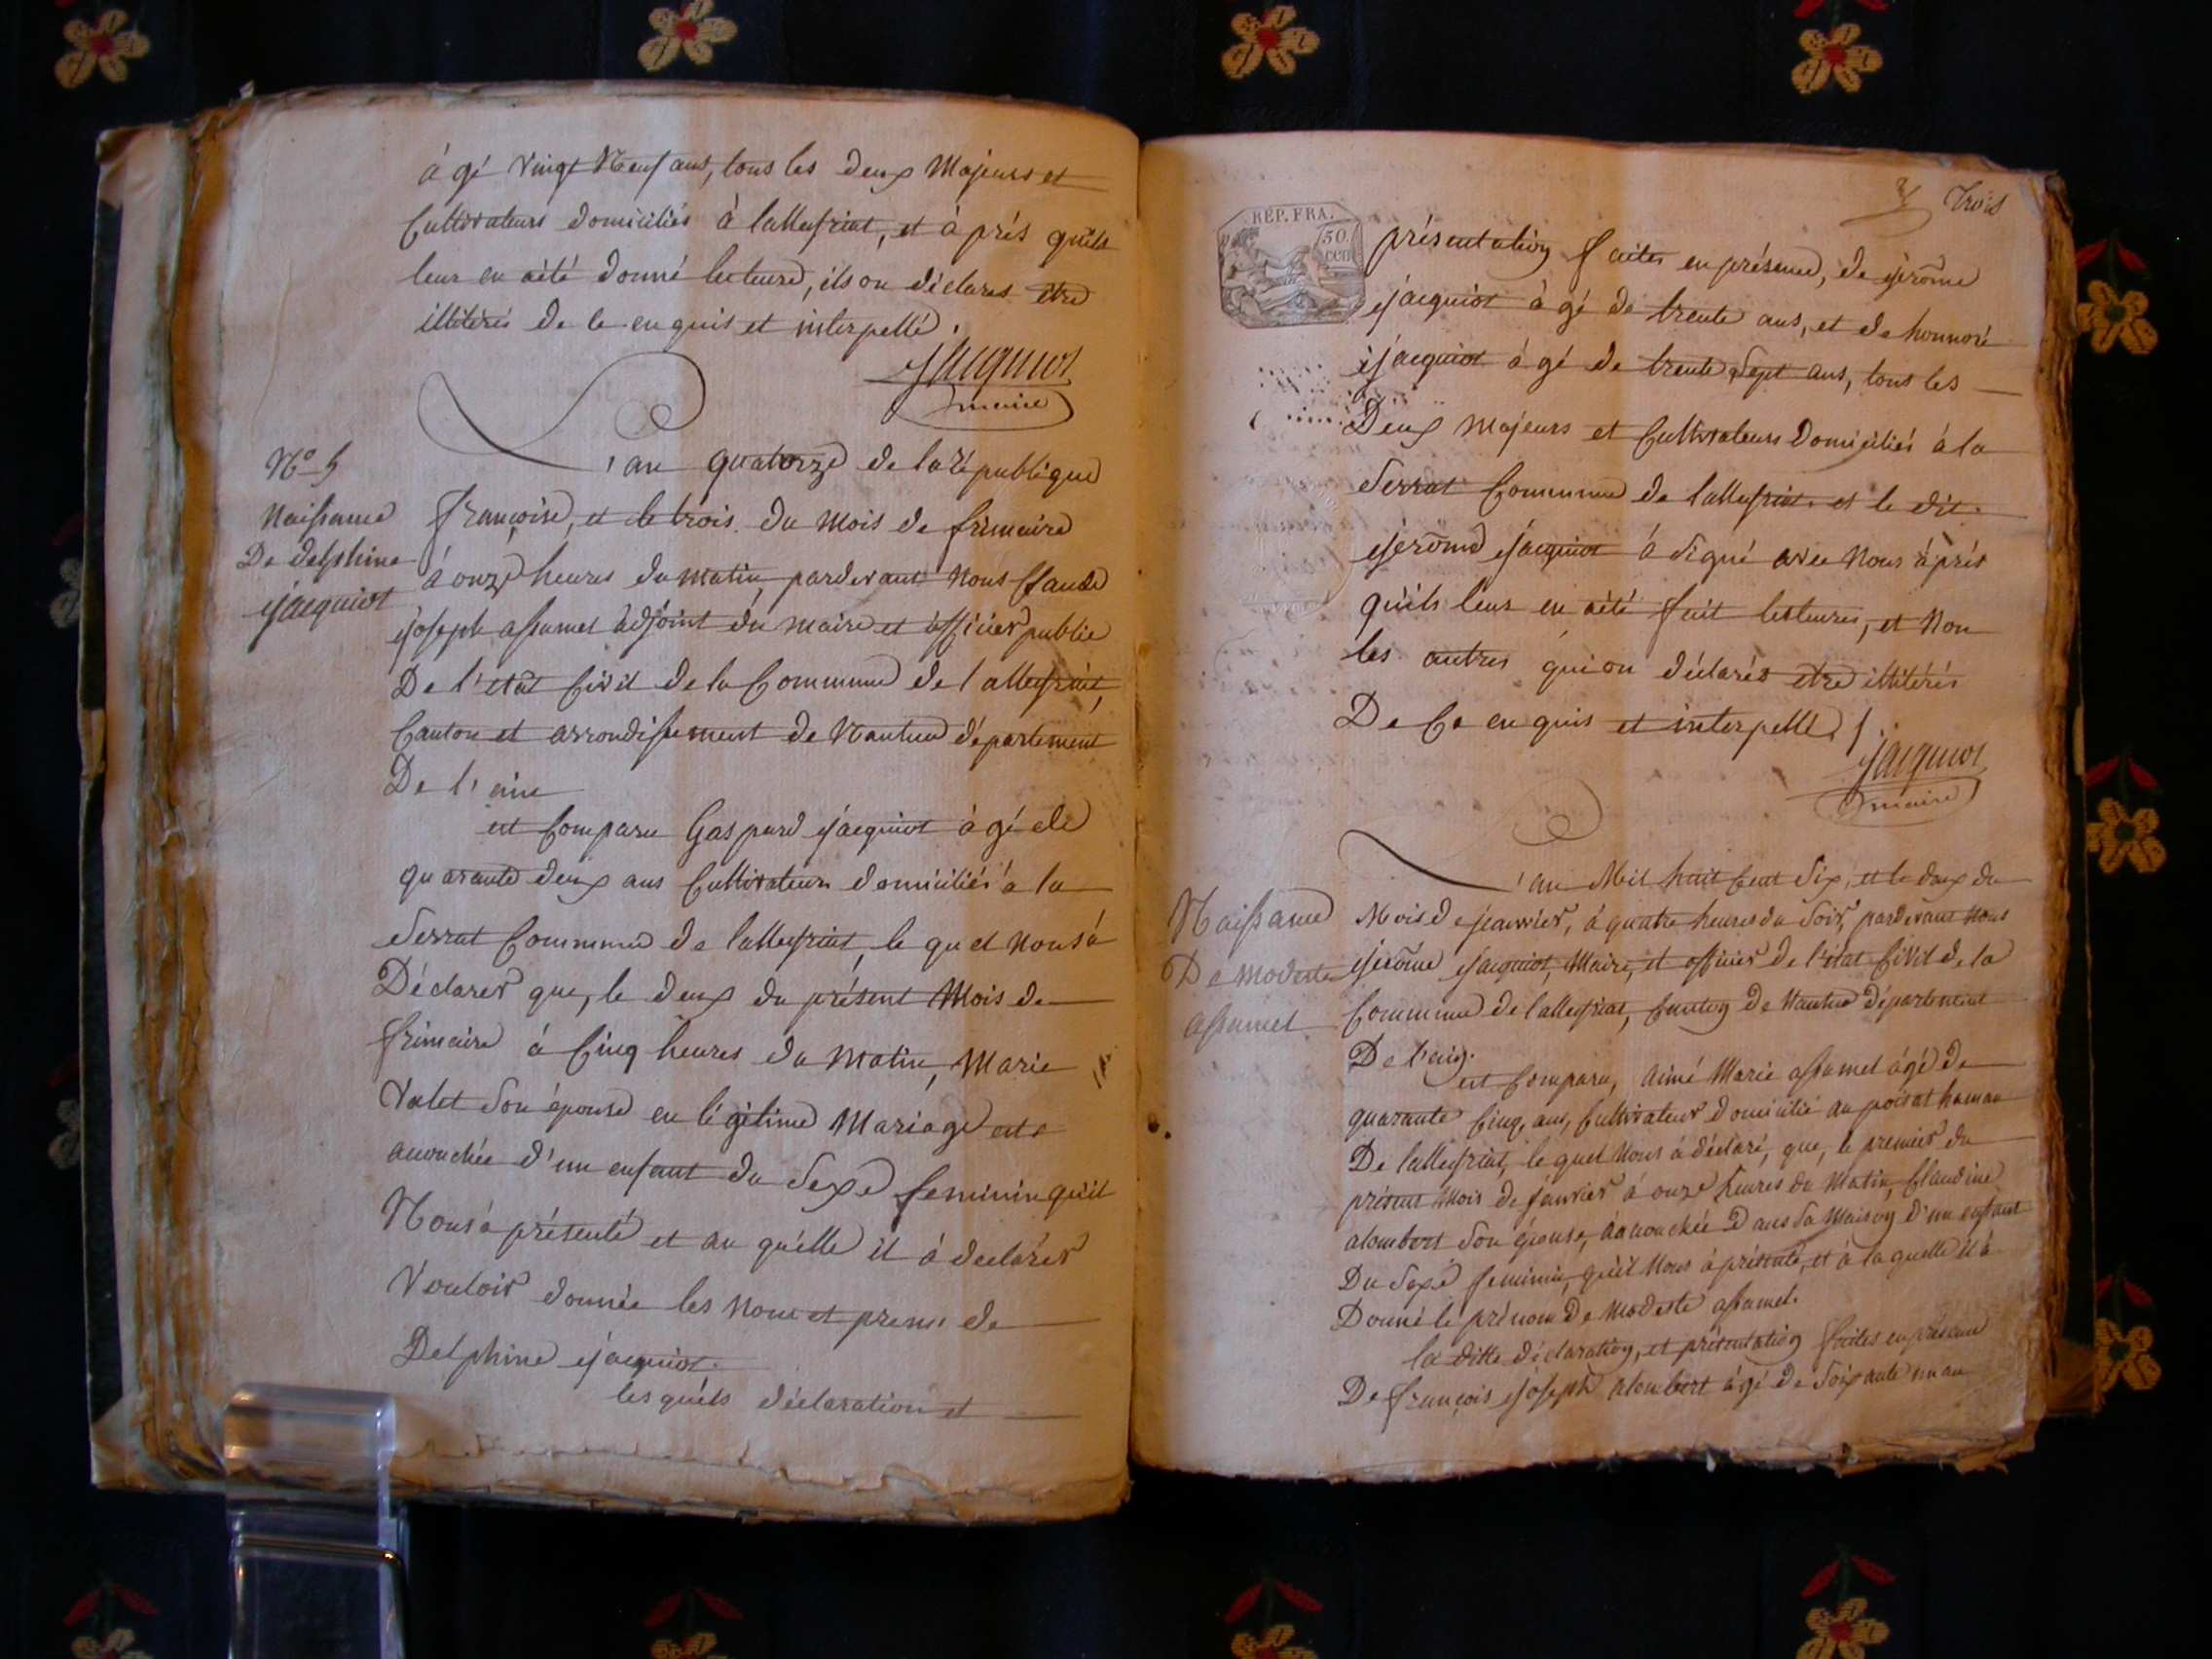 à gé vingt Neuf ans, tous les deux Majeurs et
Cultivateurs domiciliés à lalleyriat, et à prés quils
leur en aété donné lecteure, ils on déclares etre
illitérés de ce enquis et interpellé.
Jacquiot
maire
N° 5
Naissance
De delphine
Jacquiot
L'an quatorze de la république
françoise, et le trois du mois de frimaire
à onze heures du matin, pardevant Nous Claude
Joseph assumel adjoint du maire et officier public
De l'état Civil de la Commune de lalleyriat,
Canton et arrondissement de Nantua département
De l'ain
est Comparu Gaspard Jacquiot à gé de
quarante deux ans Cultivateur domiciliés à la
Serrat Commune de lalleyriat, le quel Nous à
Déclarer que, le deux du présent Mois de
frimaire à Cinq heures du matin, Marie
Valet son épouse en légitime Mariage est
accouchée d'un enfant du Sexe feminin qu'il
Nous à présenté et au quélle il à declarer
Vouloir donnée les nom et prenom de
Delphine Jacquiot.
les quéls déclaration et
3 Trois
REP. FRA.
50
cen
présentation faites en présence, de Jérôme
Jacquiot à gé de trente ans, et de honnoré
Jacquiot à gé de trente Sept ans, tous les
Deux majeurs et Cultivateurs Domiciliés à la
Serrat Commune de lalleyriat. et le dit
Jerôme Jacquiot à Signé avec Nous à prés
quils leur en aété fait lecteures, et Non
les autres qui on déclarés etre illitérés
De Ce enquis et interpellé.
Jacquiot
maire
Naissance
De Modeste
assumel
L'an Mil huit Cent Six, et le deux du
Mois de Janvier, à quatre heures du Soir, pardevant Nous
Jérôme Jacquiot, Maire, et officier De l'état Civil de la
Commune de lalleyriat, Canton De Nantua Département
De l'ain.
est Comparu, aimé Marie assumel âgé de
quarante Cinq, ans, Cultivateur Domicilié au poisat hamau
De lalleyriat, le quel Nous à déclaré, que, le premier du
présent Mois de Janvier à onze heures du Matin, Claudine
alombert Son épouse, à accouchée Dans Sa Maison d'un enfant
Du Sexe feminin, qu'il Nous à présenté, et à la quelle il à
Donné le prénom De Modeste assumel.
la ditte déclaration, et présentation faites en présence
De françois Joseph alombert âgé De Soixante un an